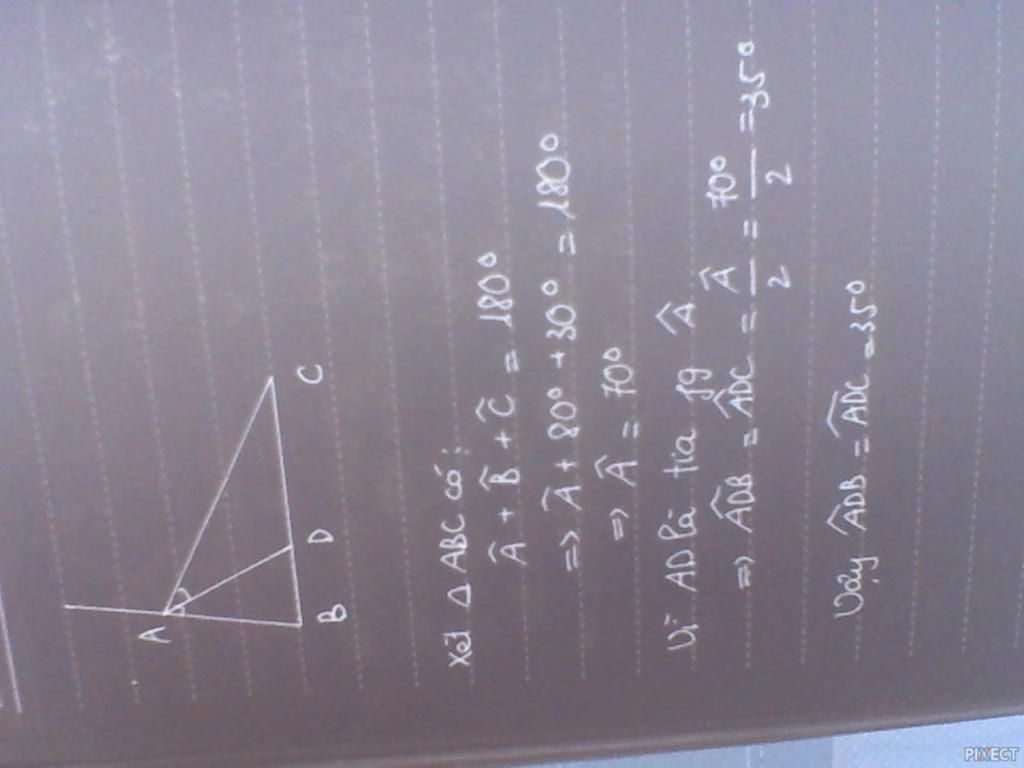 A
B
D
C
Xét Δ ABC có:
Â + B̂ + Ĉ = 180°
=> Â + 80° + 30° = 180°
=> Â = 70°
Vì AD là tia fg Â
=> ADB̂ = ADĈ = Â/2 = 70°/2 = 35°
Vậy ADB̂ = ADĈ = 35°
PIXECT